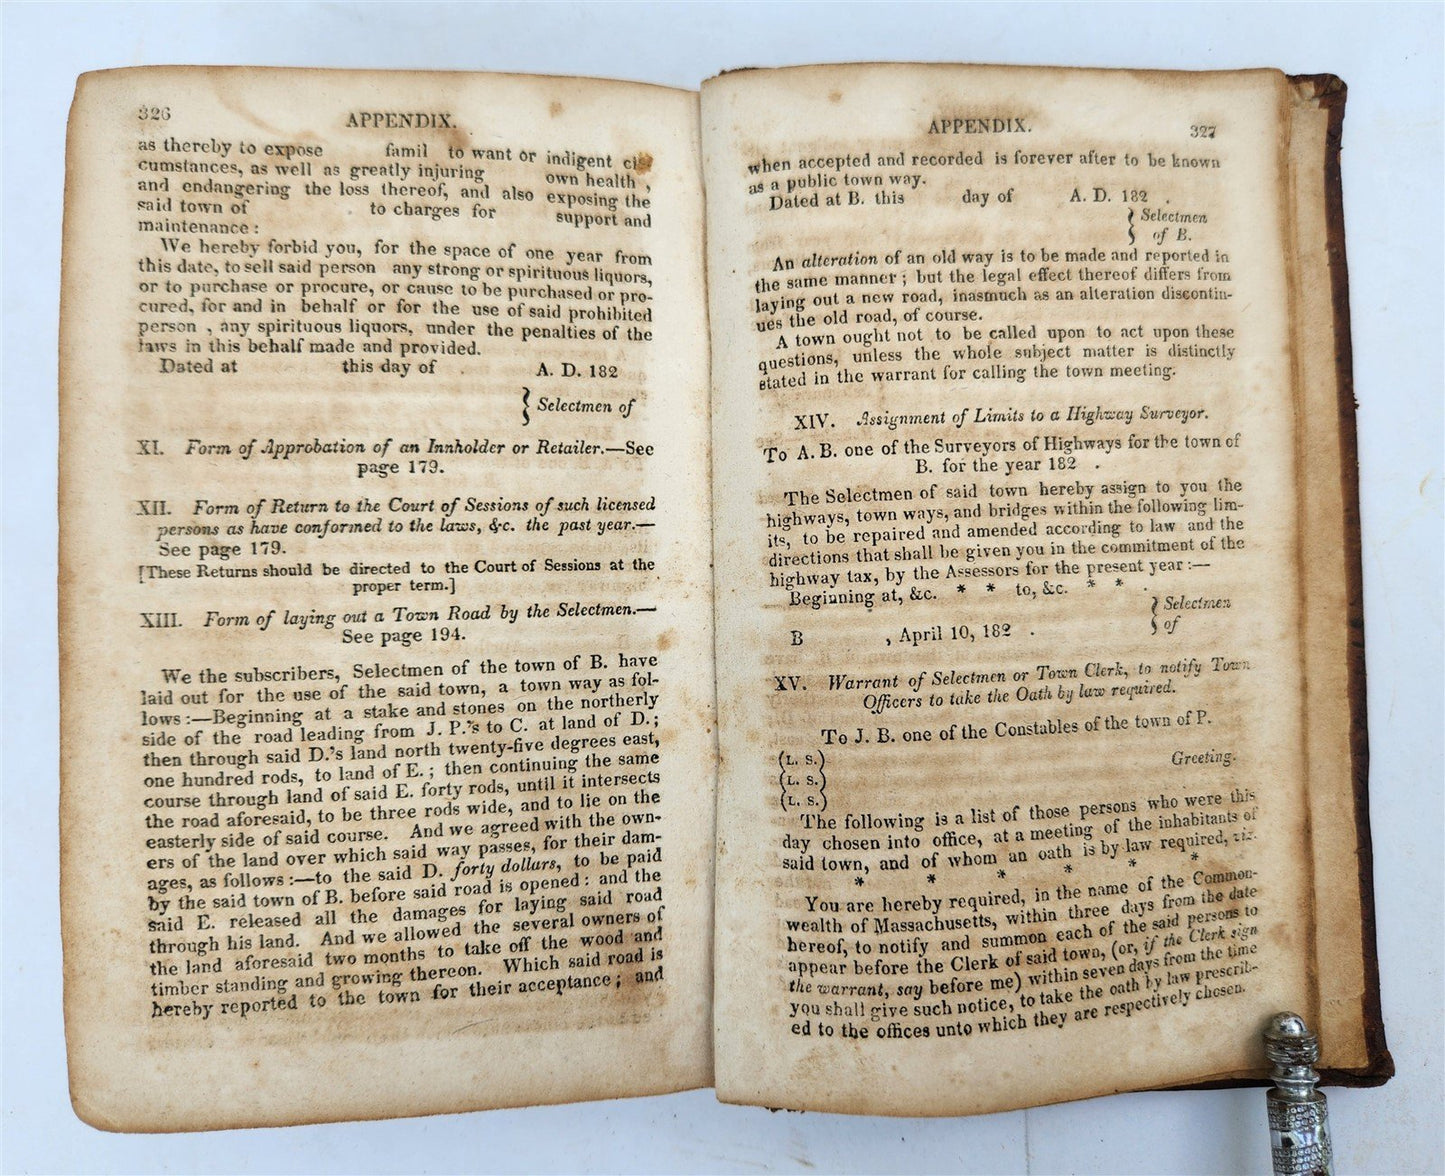 326
APPENDIX.
as thereby to expose famil to want or indigent cir-
cumstances, as well as greatly injuring own health ,
and endangering the loss thereof, and also exposing the
said town of . to charges for support and
maintenance :
We hereby forbid you, for the space of one year from
this date, to sell said person any strong or spirituous liquors,
or to purchase or procure, or cause to be purchased or pro-
cured, for and in behalf or for the use of said prohibited
person , any spirituous liquors, under the penalties of the
laws in this behalf made and provided.
Dated at this day of . A. D. 182
} Selectmen of
XI. Form of Approbation of an Innholder or Retailer.—See
page 179.
XII. Form of Return to the Court of Sessions of such licensed
persons as have conformed to the laws, &c. the past year.—
See page 179.
[These Returns should be directed to the Court of Sessions at the
proper term.]
XIII. Form of laying out a Town Road by the Selectmen.—
See page 194.
We the subscribers, Selectmen of the town of B. have
laid out for the use of the said town, a town way as fol-
lows :—Beginning at a stake and stones on the northerly
side of the road leading from J. P.'s to C. at land of D. ;
then through said D.'s land north twenty-five degrees east,
one hundred rods, to land of E. ; then continuing the same
course through land of said E. forty rods, until it intersects
the road aforesaid, to be three rods wide, and to lie on the
easterly side of said course. And we agreed with the own-
ers of the land over which said way passes, for their dam-
ages, as follows :—to the said D. forty dollars, to be paid
by the said town of B. before said road is opened : and the
said E. released all the damages for laying said road
through his land. And we allowed the several owners of
the land aforesaid two months to take off the wood and
timber standing and growing thereon. Which said road is
hereby reported to the town for their acceptance ; and
APPENDIX.
327
when accepted and recorded is forever after to be known
as a public town way.
Dated at B. this day of A. D. 182 .
} Selectmen
of B.
An alteration of an old way is to be made and reported in
the same manner ; but the legal effect thereof differs from
laying out a new road, inasmuch as an alteration discontin-
ues the old road, of course.
A town ought not to be called upon to act upon these
questions, unless the whole subject matter is distinctly
stated in the warrant for calling the town meeting.
XIV. Assignment of Limits to a Highway Surveyor.
To A. B. one of the Surveyors of Highways for the town of
B. for the year 182 .
The Selectmen of said town hereby assign to you the
highways, town ways, and bridges within the following lim-
its, to be repaired and amended according to law and the
directions that shall be given you in the commitment of the
highway tax, by the Assessors for the present year :—
Beginning at, &c. * * to, &c. * * .
} Selectmen
of
B , April 10, 182 .
XV. Warrant of Selectmen or Town Clerk, to notify Town
Officers to take the Oath by law required.
To J. B. one of the Constables of the town of P.
(L. S.)
Greeting.
(L. S.)
(L. S.)
The following is a list of those persons who were this
day chosen into office, at a meeting of the inhabitants of
said town, and of whom an oath is by law required, viz.
* * * * * *
You are hereby required, in the name of the Common-
wealth of Massachusetts, within three days from the date
hereof, to notify and summon each of the said persons to
appear before the Clerk of said town, (or, if the Clerk sign
the warrant, say before me) within seven days from the time
you shall give such notice, to take the oath by law prescrib-
ed to the offices unto which they are respectively chosen.